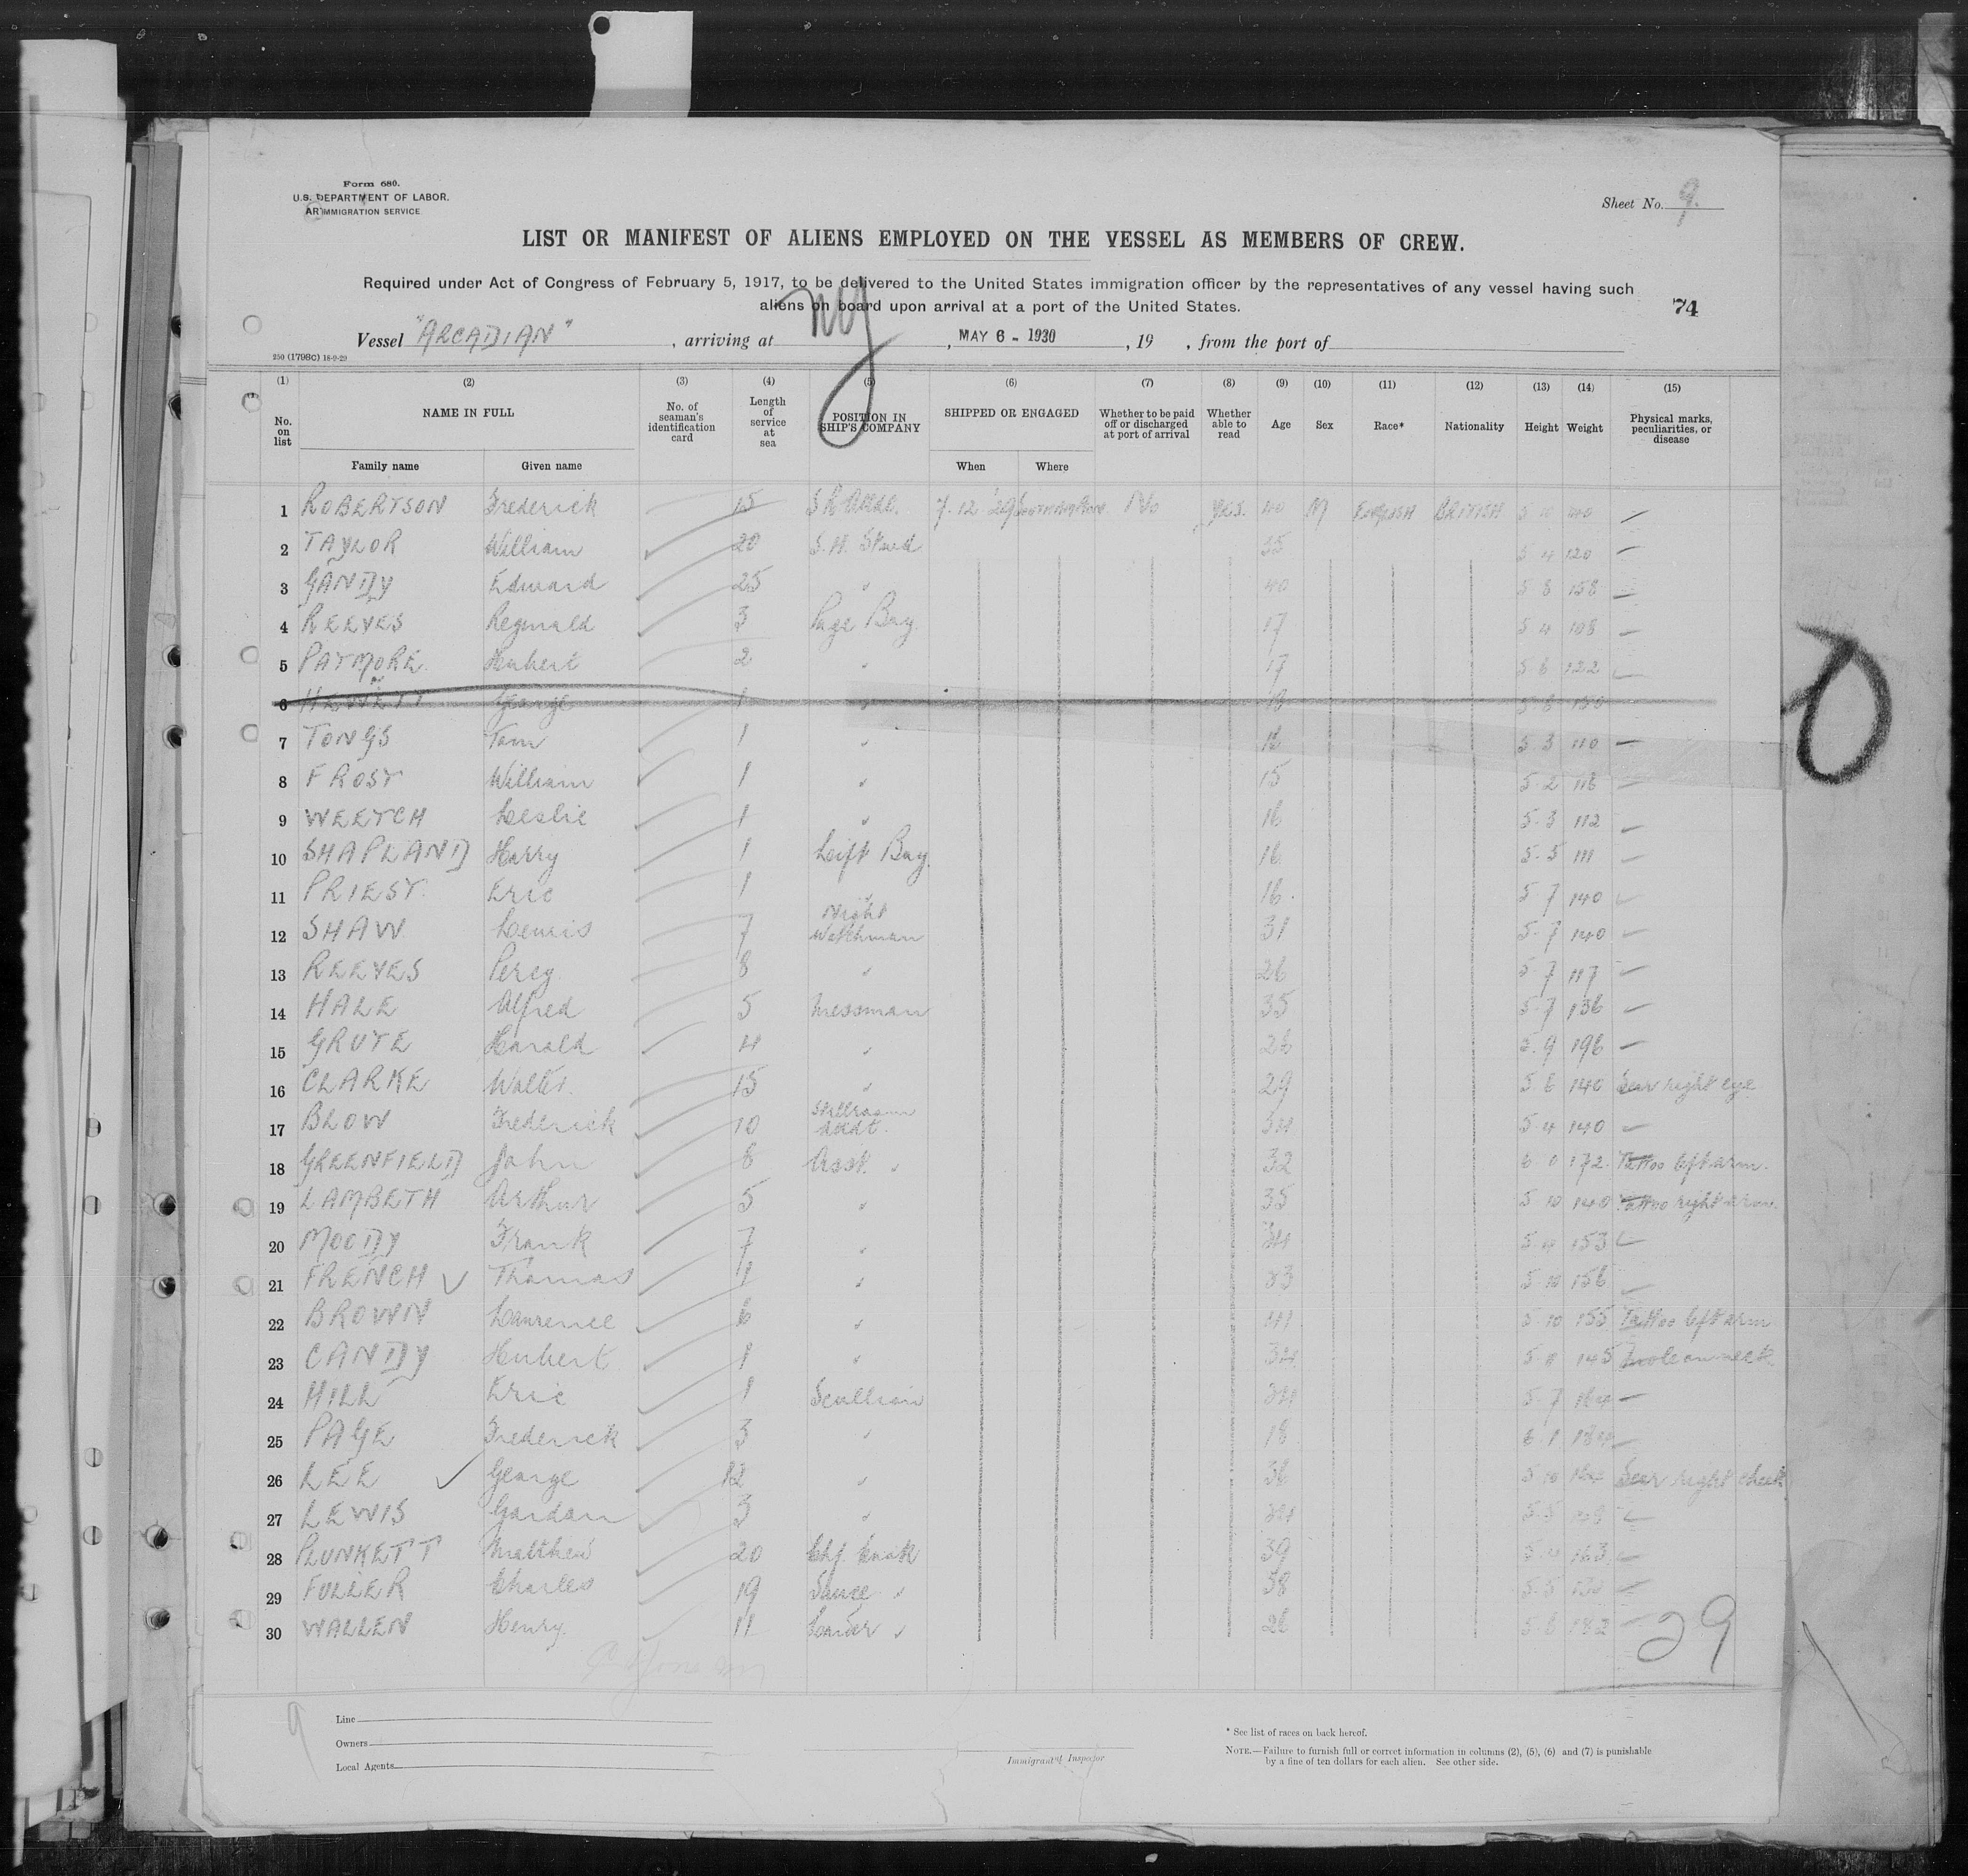 Form 680.
U.S. DEPARTMENT OF LABOR.
IMMIGRATION SERVICE
Sheet No. 9.
LIST OR MANIFEST OF ALIENS EMPLOYED ON THE VESSEL AS MEMBERS OF CREW.
Required under Act of Congress of February 5, 1917, to be delivered to the United States immigration officer by the representatives of any vessel having such
aliens on board upon arrival at a port of the United States.
74
Vessel "ARCADIAN", arriving at NY, MAY 6 - 1930, 19 , from the port of
250 (1798C) 18-9-29
(1) (2) (3) (4) (5) (6) (7) (8) (9) (10) (11) (12) (13) (14) (15)
No. on list NAME IN FULL No. of seaman's identification card Length of service at sea POSITION IN SHIP'S COMPANY SHIPPED OR ENGAGED Whether to be paid off or discharged at port of arrival Whether able to read Age Sex Race* Nationality Height Weight Physical marks, peculiarities, or disease
Family name Given name When Where
1 ROBERTSON Frederick 15 7.12.29 Southampton No YES. 40 M ENGLISH BRITISH 5 10
2 TAYLOR William 20 S.H. Stwd 35 5 4 120 —
3 GANDY Edward 25 " 40 5 8 158 —
4 REEVES Reginald 3 Page Boy. 17 5 4 108 —
5 PATMORE. Hubert 2 " 17 5 6 122 —
6 George 1 " 18 5 8
7 TONGS Tom 1 " 16 5 3 110 —
8 FROST William 1 " 15 5 2 116 —
9 WEETCH Leslie 1 " 16 5 3 112 —
10 SHAPLAND Harry 1 Lift Boy. 16 5 5 111 —
11 PRIEST. Eric 1 " 16. 5 7 140 —
12 SHAW Lewis 7 Night Watchman 31 5 7 140 —
13 REEVES Percy 8 " 26 5 7 117 —
14 HALE Alfred 5 Messman 35 5 7 136 —
15 GRUTE Harold 4 " 26 5 9 196 —
16 CLARKE Walter. 15 " 29 5 6 140 Scar right eye
17 BLOW Frederick 10 Stillroom 34 5 4 140 —
18 GREENFIELD John 8 Asst. " 32 6 0 172 Tattoo left arm.
19 LAMBETH Arthur 5 " 35 5 10 140 Tattoo right arm.
20 MOODY Frank 7 " 34 5 153 —
21 FRENCH Thomas 1 " 33 5 10 156 —
22 BROWN Laurence 6 " 41 5 10 155 Tattoo left arm
23 CANDY Hubert 1 " 34 5 11 145 Mole on neck
24 HILL Eric 1 Scullion 24 5 7 164 —
25 PAGE Frederick 3 " 18 6 1 184 —
26 LEE George 12 " 36 5 10 Scar right cheek
27 LEWIS Gordon 3 " 24 5 5 —
28 PLUNKETT Matthew 20 Chf. Cook 39 5 163 —
29 FULLER Charles 19 Sauce " 38 5 5 —
30 WALLEN Henry. 11 Larder " 26 5 6 182 —
29
9
Line
Owners
Local Agents
Immigrant Inspector
* See list of races on back hereof.
NOTE.—Failure to furnish full or correct information in columns (2), (5), (6) and (7) is punishable
by a fine of ten dollars for each alien. See other side.